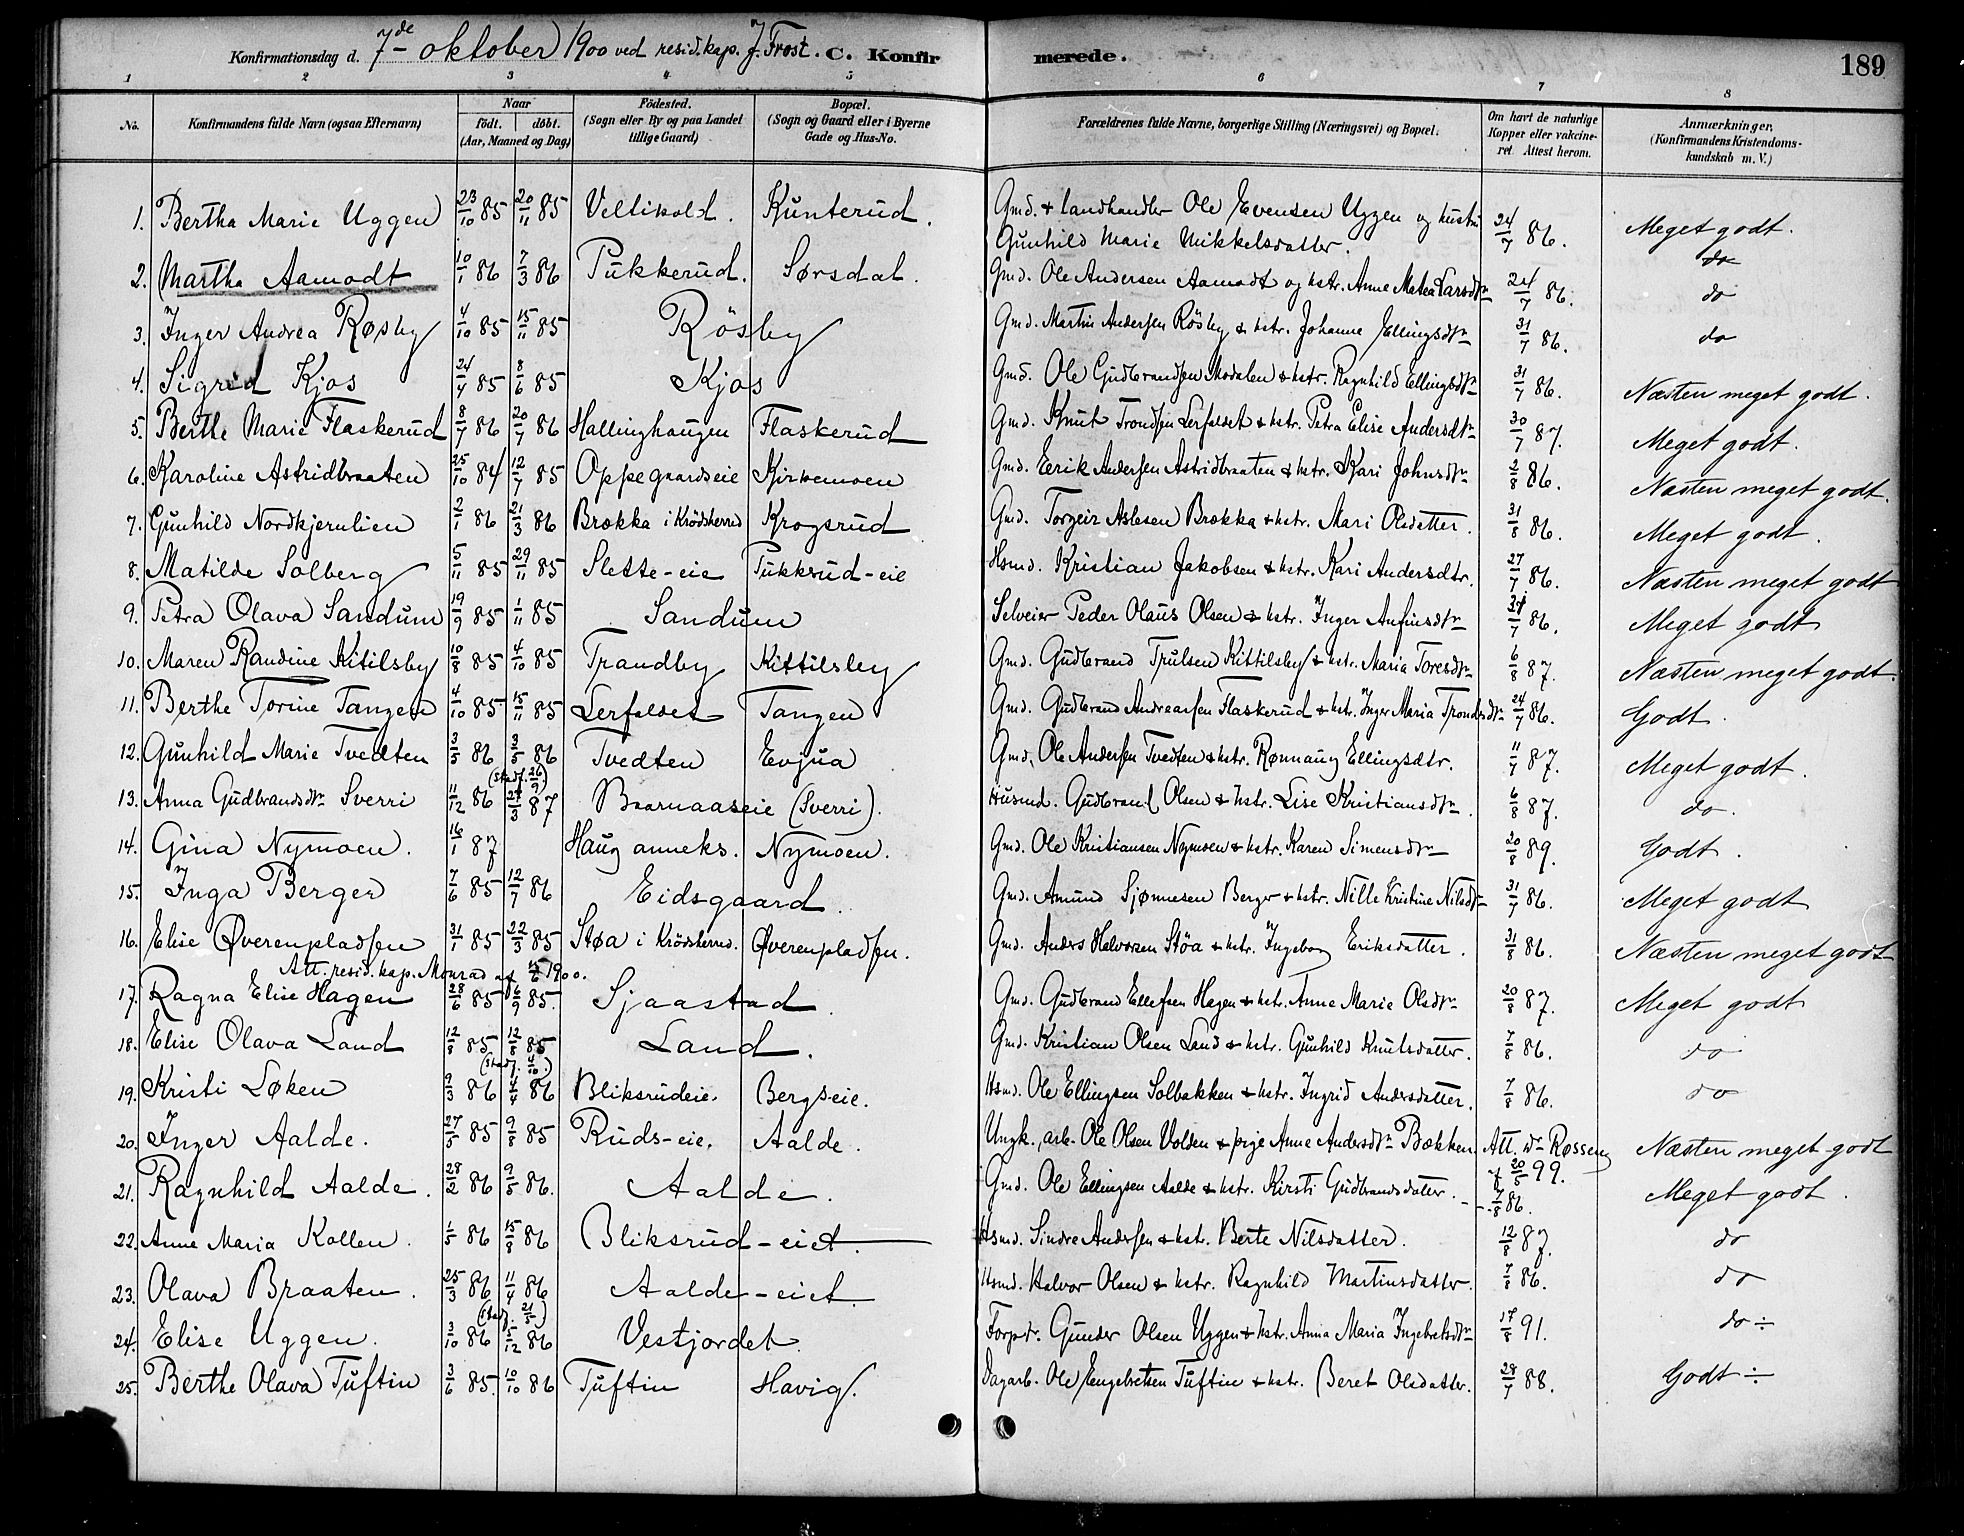 Konfirmationsdag d. 7de oktober 1900 ved resid. kap. J. Frost. C. Konfirmerede. 189
1 2 3 4 5 6 7 8
No. Konfirmandens fulde Navn (ogsaa Efternavn) Naar født. døbt. (Aar, Maaned og Dag) Födested. (Sogn eller By og paa Landet tillige Gaard) Bopæl. (Sogn og Gaard eller i Byerne Gade og Hus-No. Forældrenes fulde Navne, borgerlige Stilling (Næringsvei) og Bopæl. Om havt de naturlige Kopper eller vakcineret. Attest herom. Anmærkninger. (Konfirmandens Kristendomskundskab m. V.)
1. Bertha Marie Uggen 23/10 85 20/11 85 Veltikold. Kunterud. Gmd. + landhandler Ole Evensen Uggen og hustru Gunhild Marie Mikkelsdatter. 24/7 86. Meget godt.
do
2. Martha Aamodt 10/1 86 7/3 86 Pukkerud. Sørsdal. Gmd. Ole Andersen Aamodt og hstr. Anne Matea Larsdtr 24/7 86. do
3. Inger Andrea Røsby 4/10 85 15/11 85 Rösby Gmd. Martin Andersen Rösby & hstr. Johanne Ellingsdtr 31/7 86. do
4. Sigrid Kjos 24/4 85 8/6 85 Kjos Gmd. Ole Gudbrandsen Modalen & hstr. Ragnhild Ellingsdtr 31/7 86. Næsten meget godt.
5. Berthe Marie Flaskerud 8/7 86 20/7 86 Hallinghaugen Flaskerud Gmd. Knut Trondsen Lerfaldet & hstr. Petra Elise Andersdtr 30/7 87. Meget godt.
6. Karoline Astridbraaten 25/10 84 12/7 85 Oppegaardseie Kirkemoen Gmd. Eerik Andersen Astridbraaten & hstr. Kari Johnsdtr 2/8 86. Næsten meget godt.
7. Gunhild Nordkjernlien 2/1 86 21/3 86 Brækka i Krödsherred Krogsrud Gmd. Torgeir Aslesen Brækka & hstr. Mari Olsdatter. 31/8 86. Meget godt.
8. Matilde Solberg 5/11 85 29/11 85 Slette-eie Pukkrud-eie Hsmd. Kristian Jakobsen & hstr. Kari Andersdtr. 27/7 86. Næsten meget godt
9. Petra Olava Sandum 19/9 85 1/11 85 Sandum Selveier Peder Olaus Olsen & hstr. Inger Anfinsdtr 31/7 86. Meget godt
10. Maren Randine Kitilsby 10/8 85 4/10 85 Trandby Kittilsby Gmd. Gudbrand Trulsen Kittilsby & hstr. Maria Toresdtr 6/8 87. Næsten meget godt.
11. Berthe Torine Tangen 4/10 85 15/11 85 Lerfaldet Tangen Gmd. Gudbrand Andreassen Flaskerud & hstr. Inger Maria Trondsdtr 24/7 86. Godt.
12. Gunhild Marie Tvedten 3/5 86 3/5 86 Tvedten Evjua Gmd. Ole Andersen Tvedten & hstr. Rønnaug Ellingsdtr. 11/7 87. Meget godt.
(stadf. 26/9)
13. Anna Gudbrandsdtr Sverri 11/12 86 27/3 87 Baarnaaseie (Sverri). Husmd. Gudbrand Olsen & hstr. Lise Kristiansdtr. 6/8 87. do.
14. Gina Nymoen. 16/1 87 Haug anneks. Nymoen. Gmd. Ole Kristiansen Nymoen & hstr. Karen Simensdtr 20/8 89. Godt.
15. Inga Berger 7/6 85 12/7 86 Eidsgaard. Gmd. Amund Sjønnesen Berger & hstr. Nille Kristine Nilsdtr 31/7 86. Meget godt
16. Elise Øverenpladsen 31/1 85 22/3 85 Støa i Krödsherred. Øverenpladsen. Gmd. Anders Halvorsen Stöa & hstr. Ingeborg Eriksdatter. 31/8 86. Næsten meget godt
Att. resid. kap. Monrad af 15/6 1900.
17. Ragna Elise Hagen 28/6 85 6/9 85. Sjaastad. Gmd. Gudbrand Ellefsen Hagen & hstr. Anne Marie Olsdtr 20/8 87. Meget godt
18. Elise Olava Land 12/8 85 12/8 85 Land. Gmd. Kristian Olsen Land & hstr. Gunhild Knutsdatter. 7/8 86. do
(stadf. 4/10.)
19. Kristi Løken 9/3 86 4/4 86 Bliksrudeie. Bergseie. Hsmd. Ole Ellingsen Solbakken & hstr. Ingrid Andersdatter. 7/8 86. do
20. Inger Aalde. 27/5 85 9/8 85 Ruds-eie. Aalde. Ungk., arb. Ole Olsen Volden & pige Anne Andersdtr Bækken. Att. Dr Røssen f 20/5 99. Næsten meget godt
21. Ragnhild Aalde. 28/2 86 9/5 86. Aalde. Gmd. Ole Ellingsen Aalde & hstr. Kirsti Gudbrandsdatter. 7/8 86. Meget godt.
22. Anne Maria Kollen. 1/5 86 15/8 86 Bliksrud-eiet. Hsmd. Sindre Andersen & hstr. Berte Nilsdatter. 12/8 87. do
23. Olava Braaten. 25/3 86 11/4 86 Aalde-eiet. Hsmd. Halvor Olsen & hstr. Ragnhild Martinsdatter. 7/8 86. do
(stadf. 21/5)
24. Elise Uggen. 3/10 86 5/12 86 Vestjordet. Forpdr. Gunder Olsen Uggen & hstr. Anna Maria Ingebretsdtr 17/8 91. do ÷
25. Berthe Olava Tuftin 3/6 85. 10/10 86 Tuftin Havig. Dagarb. Ole Engebretsen Tuftin & hstr. Beret Olsdatter. 28/7 88. Godt ÷